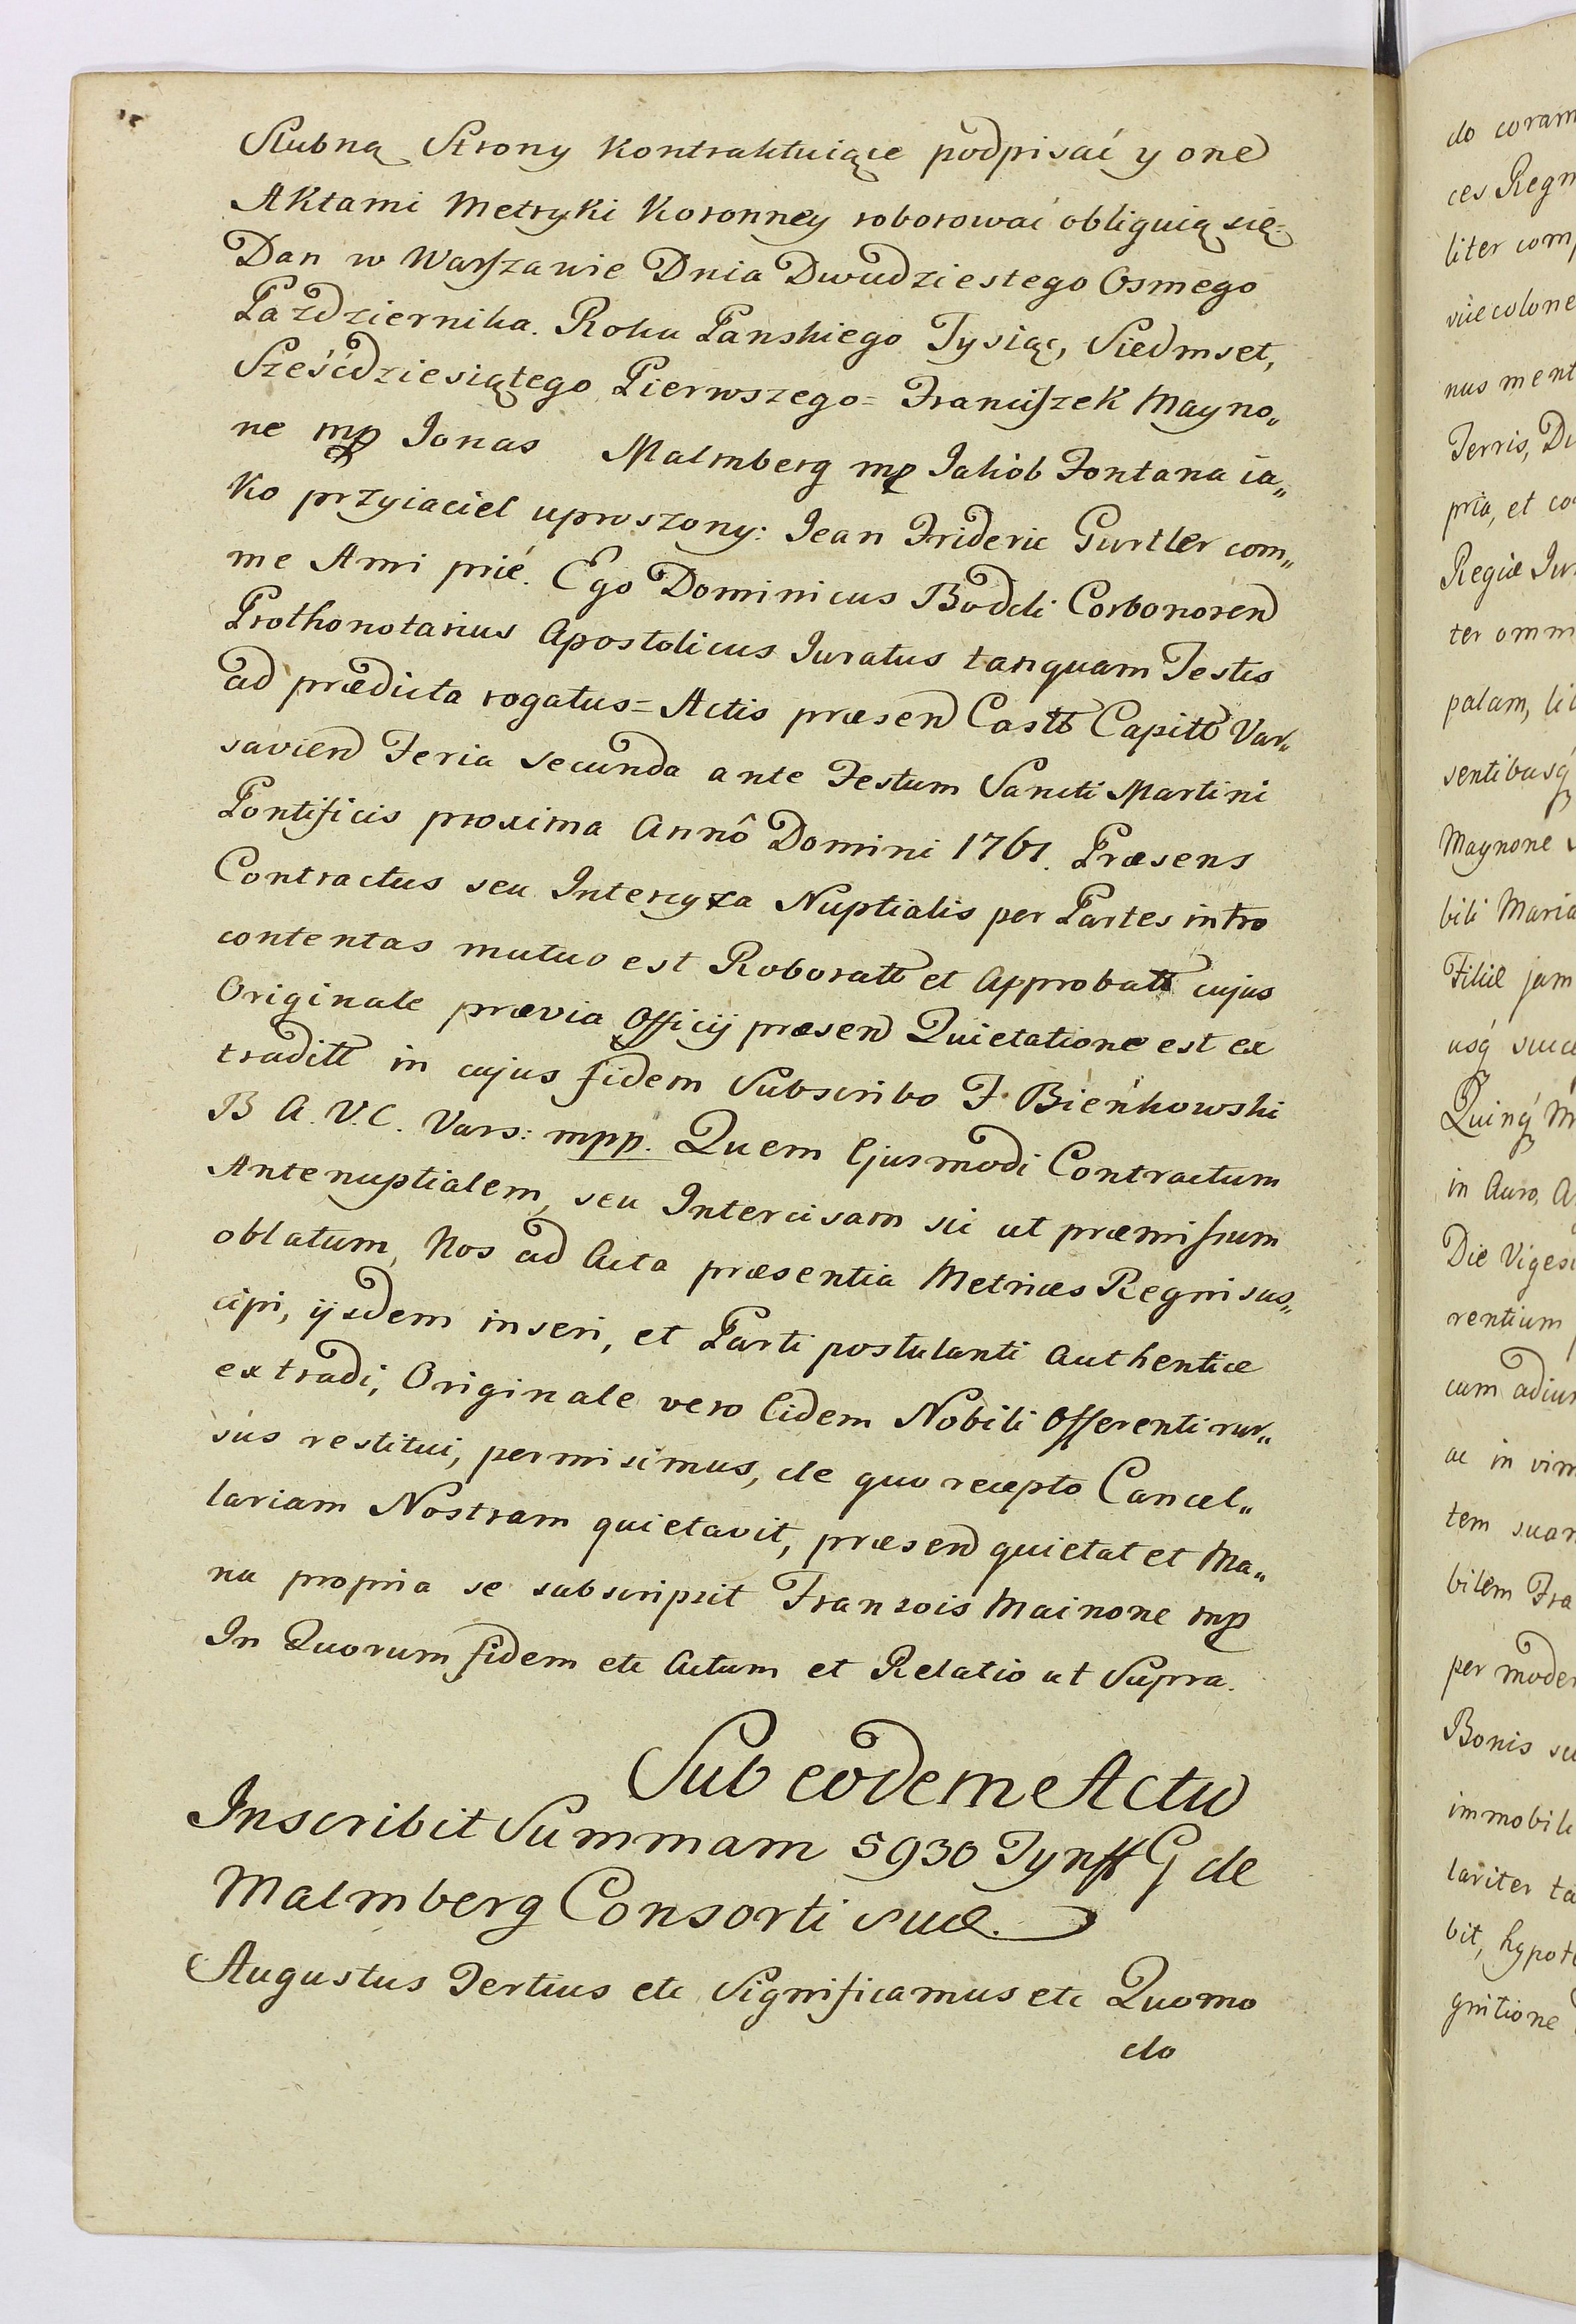 Slubną Strony kontraktuiące podpisać y one
Aktami Metryki Koronney roborować obliguią się:
Dan w Warszawie Dnia Dwudziestego Osmego
Pazdziernika. Roku Panskiego Tysiąc, Siedmset,
Sześćdziesiątego Pierwszego = Franciszek Mayno„
ne mp Jonas Malmberg mp Jakob Fontana ia„
ko przyiaciel uproszony: Jean Frideric Gurtler com„
me Ami prié. Ego Dominicus Boddi Corbonoren
Prothonotarius Apostolicus Juratus tanquam Testis
ad prædicta rogatus = Actis præsen Castt Capitt Var„
savien Feria secunda ante Festum Sancti Martini
Pontificis proxima Annô Domini 1761. Præsens
Contractus seu Intercyza Nuptialis per Partes intro
contentas mutuo est Roboratt et Approbatt cujus
Originale prævia Officij præsen Quietatione est ex
traditt in cujus fidem Subscribo F. Bieńkowski
B A. V. C. Vars: mpp. Quem Ejusmodi Contractum
Antenuptialem, seu Intercisam sic ut præmissum
oblatum, Nos ad Acta præsentia Metrices Regni sus„
cipi, ijsdem inseri, et Parti postulanti authentice
extradi, Originale vero Eidem Nobili Offerenti rur„
sus restitui, permisimus, de quo recepto Cancel„
lariam Nostram quietavit, præsen quietat et Ma„
nu propria se subscripsit Fransois Mainone mp
In Quorum fidem etc Actum et Relatio ut Supra.
Sub eodem Actu
Inscribit Summam 5930 Tynff G de
Malmberg Consorti suæ.
Augustus Tertius etc Significamus etc Quomo
do
do coram
ces Regn
liter comp
nus ment
Terris, Du
pria, et co
Regiæ Jur
ter omn
palam, li
sentibusq
Maynone
bili Maria
Filiæ jam
usq succe
Quinq M
in Auro, A
Die Viges
rentium
cum adiun
ac in vim
tem suam
bilem Fra
per moder
Bonis su
immobili
lariter ta
bit, hypot
gnitione